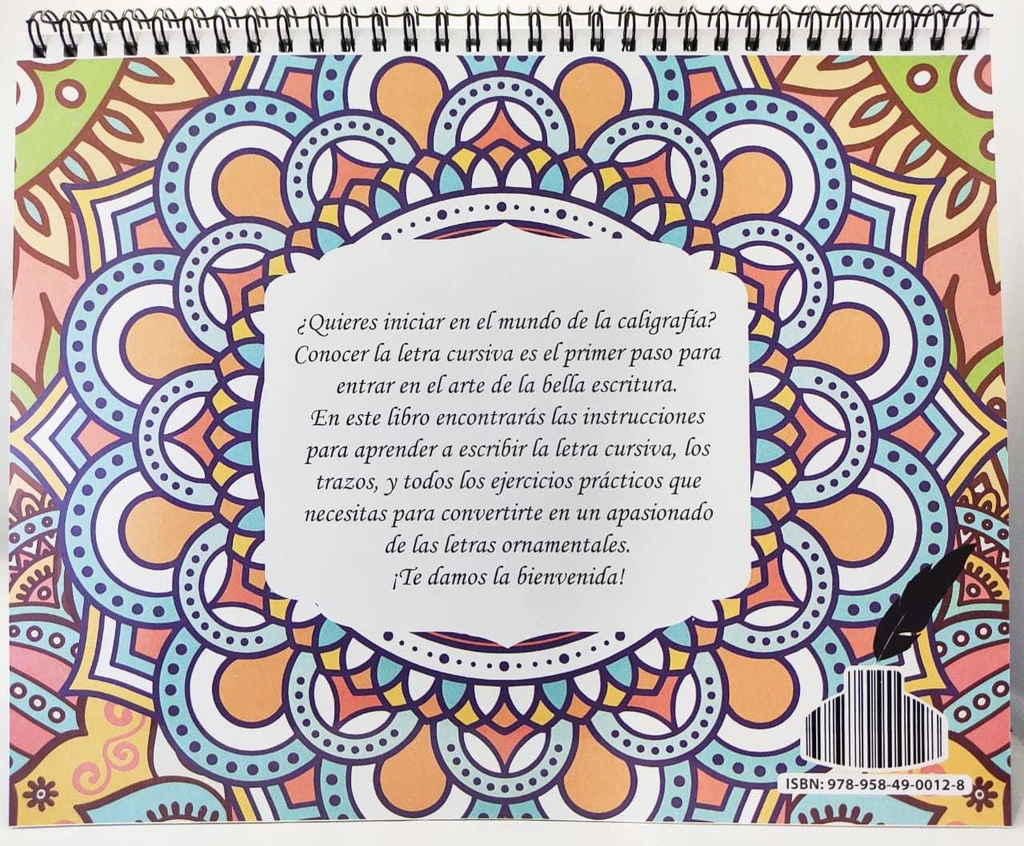 ¿Quieres iniciar en el mundo de la caligrafía?
Conocer la letra cursiva es el primer paso para
entrar en el arte de la bella escritura.
En este libro encontrarás las instrucciones
para aprender a escribir la letra cursiva, los
trazos, y todos los ejercicios prácticos que
necesitas para convertirte en un apasionado
de las letras ornamentales.
¡Te damos la bienvenida!
ISBN: 978-958-49-0012-8